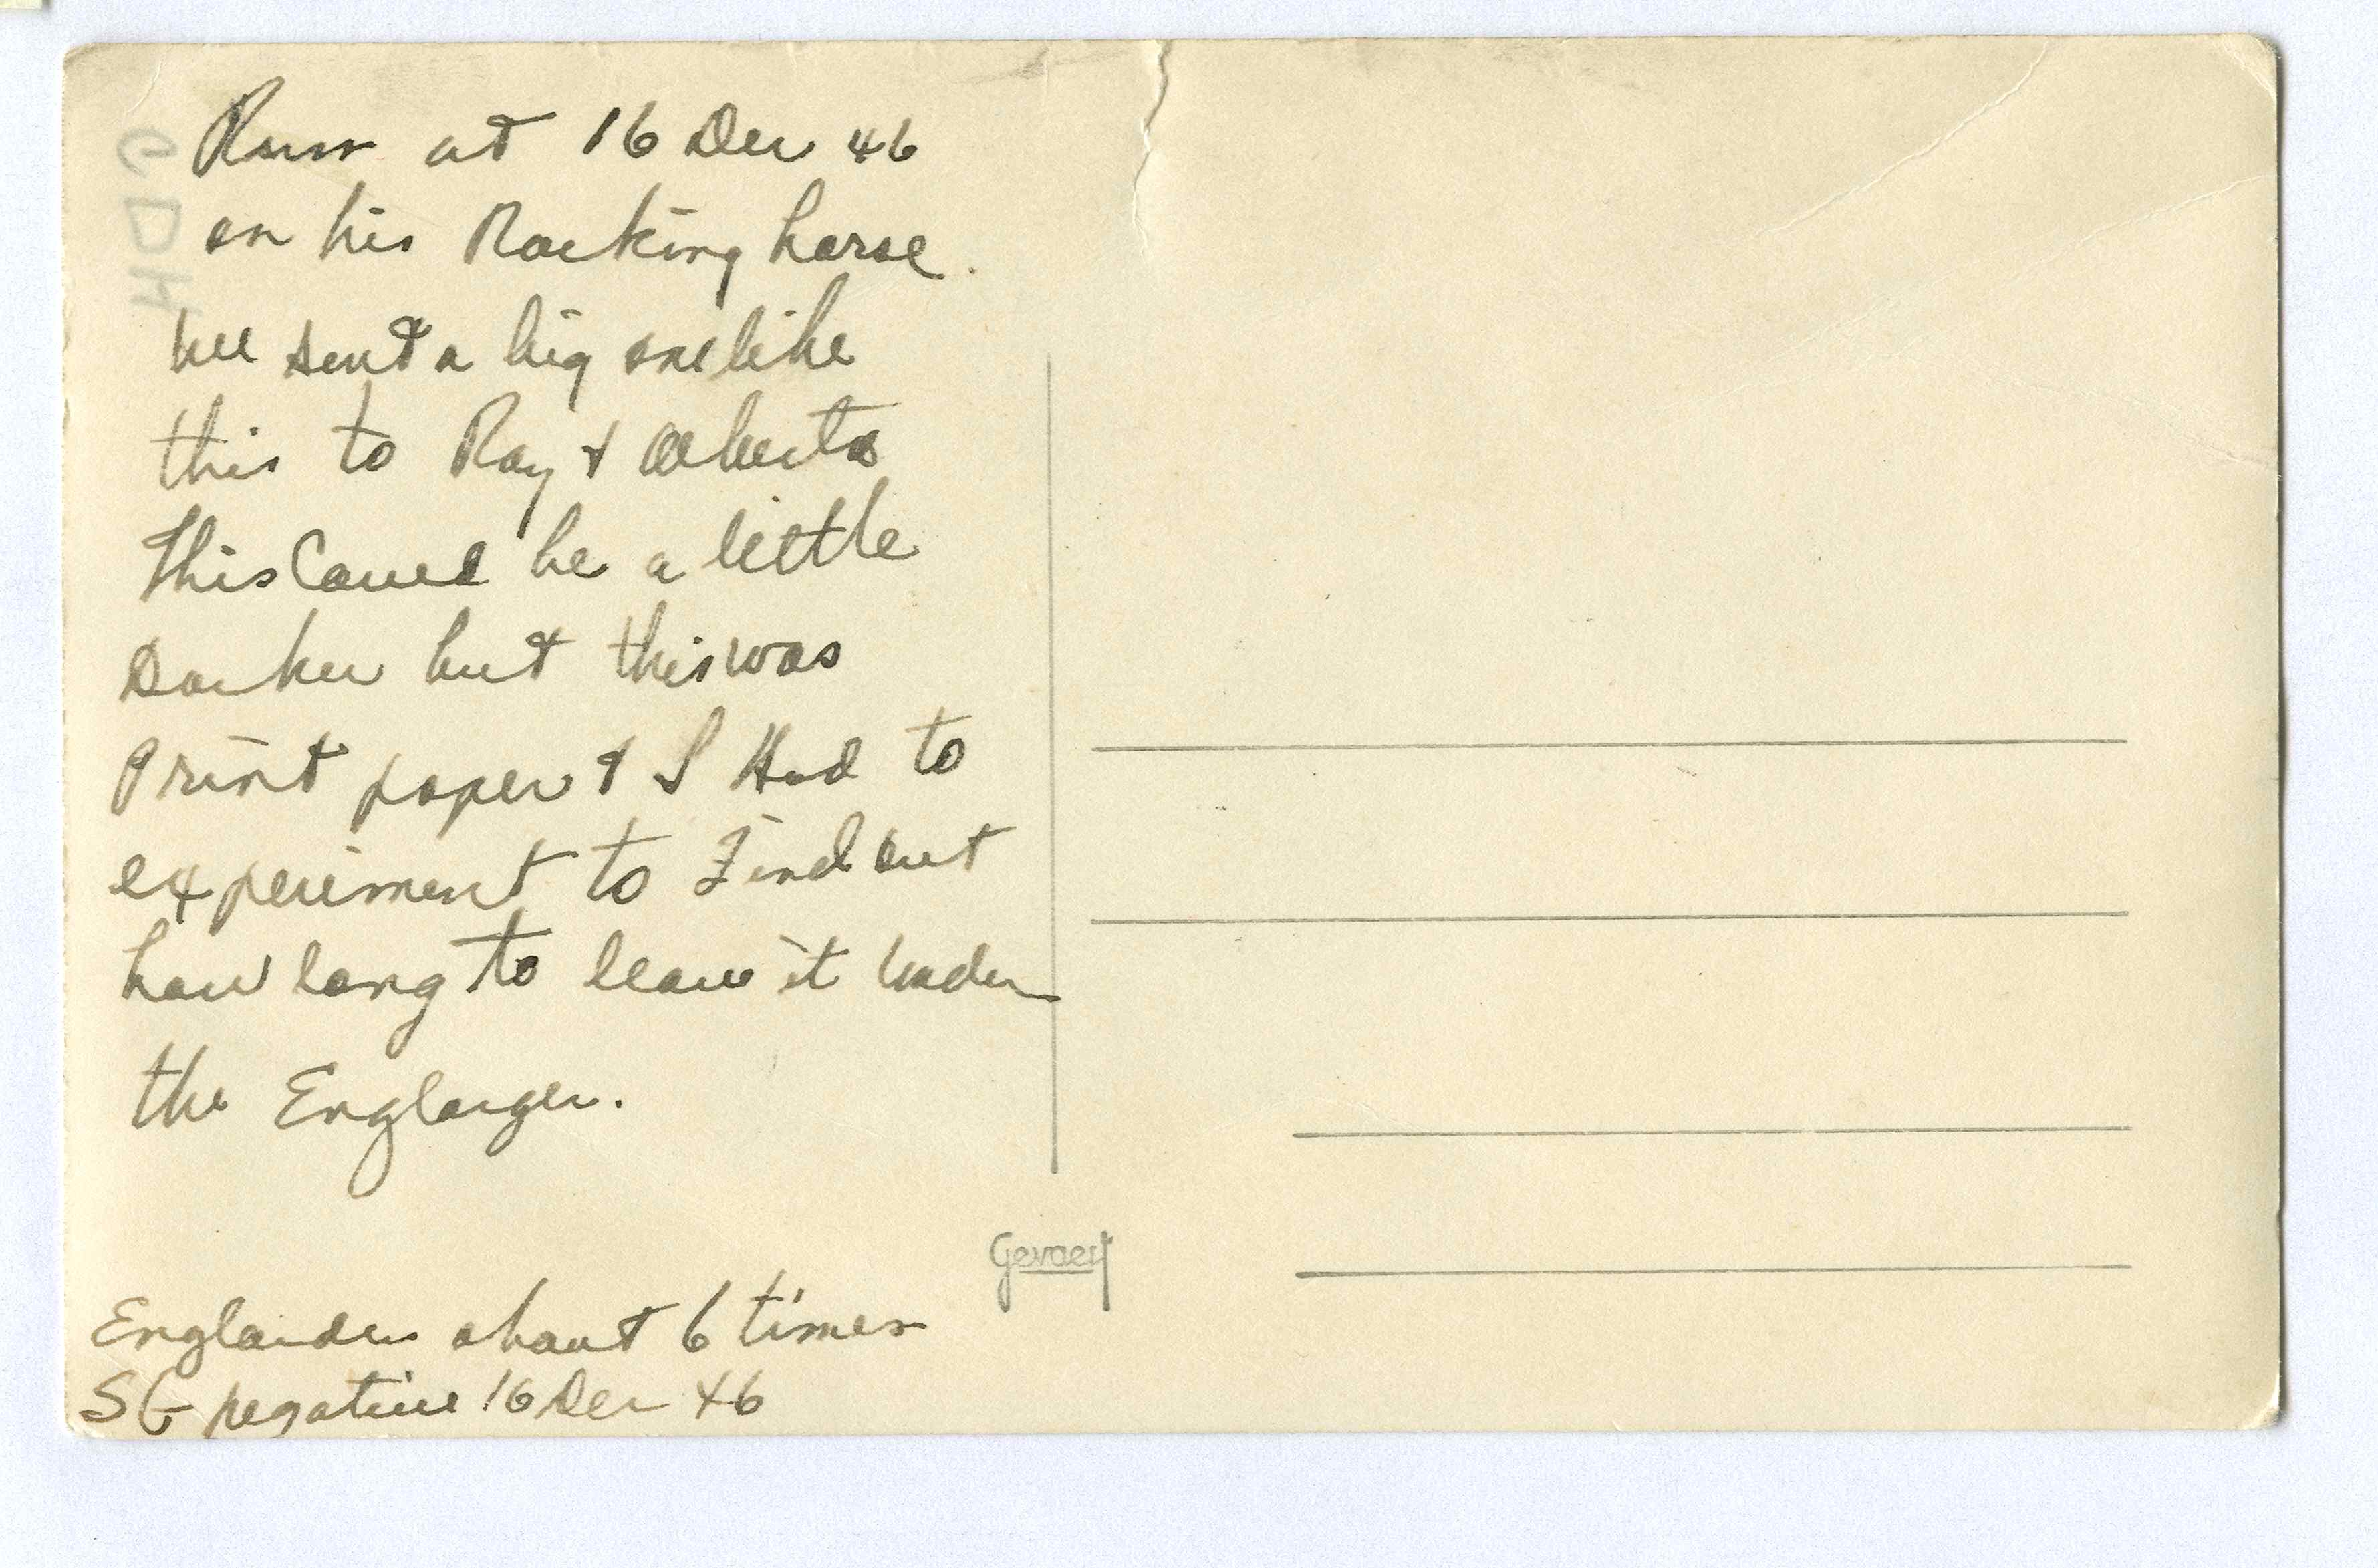 Russ at 16 Dec 46
on his Rocking horse.
we sent a big one like
this to Ray & Alberta
This Coued be a little
Darker but this was
Print paper & I Had to
experiment to Find out
how long to leave it under
the Englarger.
Englarden about 6 times
SG negative 16 Dec 46
Gevaert
CDH